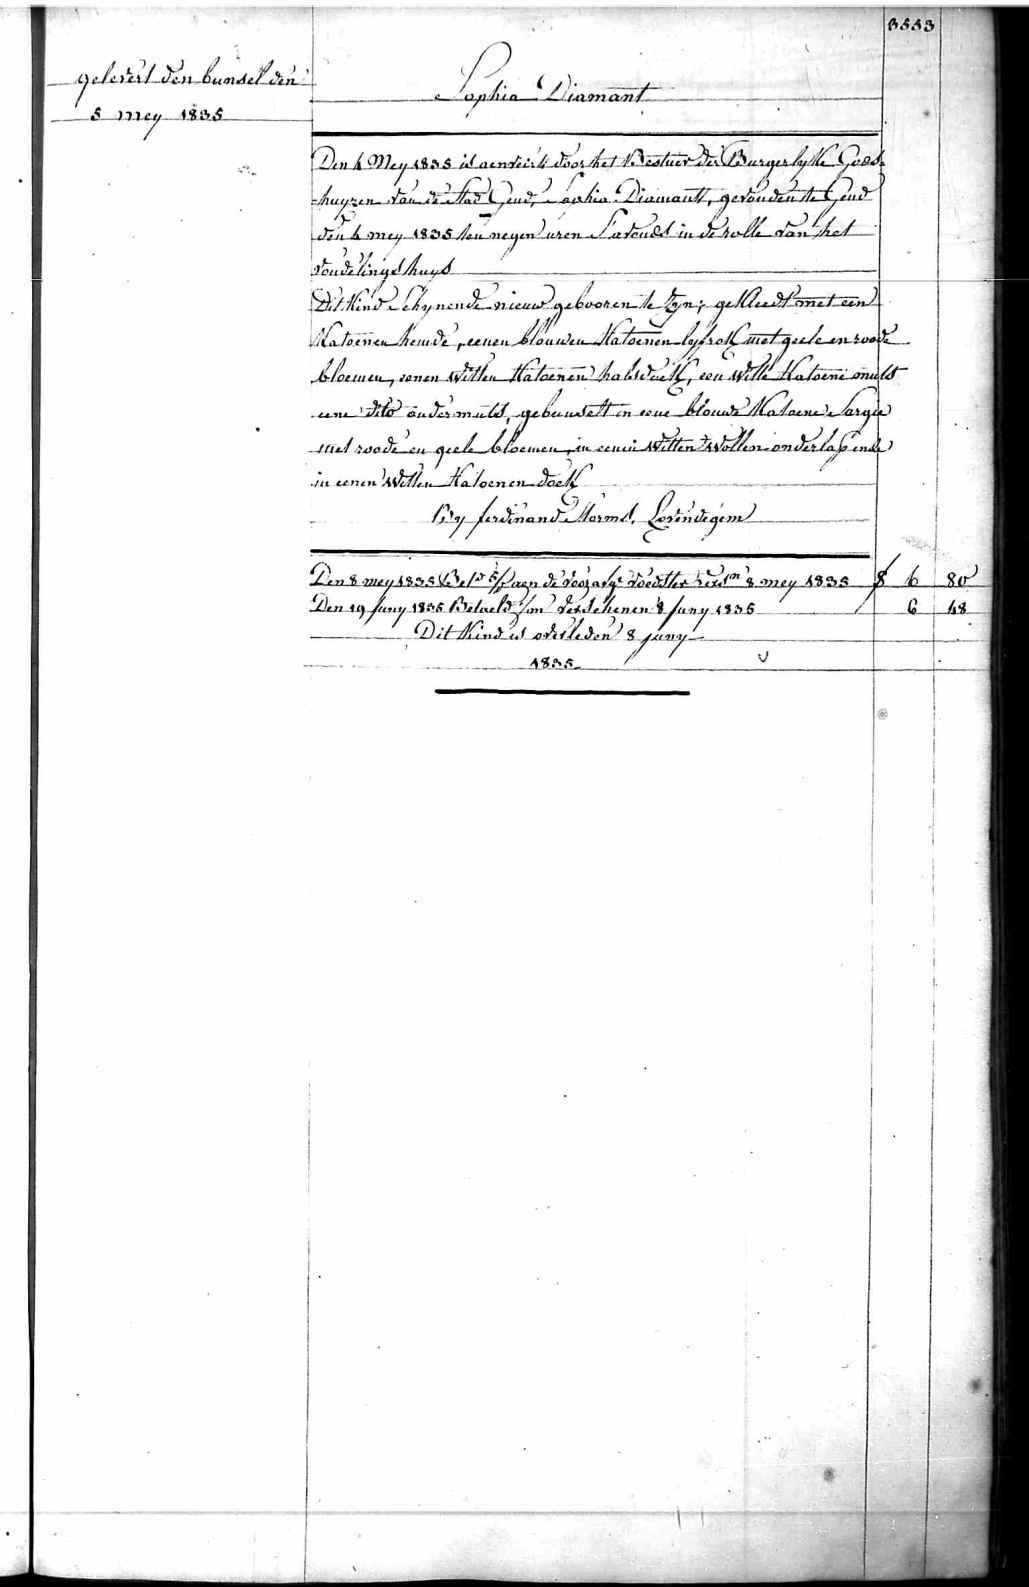 3553
gelevert den bunsel den
5 mey 1835
Sophia Diamant
Den 4 Mey 1835 is aenveirt door het Bestuer der Burgerlyke Gods-
huyzen van de Stad Gend, Sophia Diamant, gevonden te Gend
den 4 mey 1835 ten negen uren S'avonds in de rolle van het
vondelingshuys
Dit Kind schynende nieuw gebooren te zyn; gekleedt met een
Katoenen hemde, eenen blouwen Katoenen lyfrok met geele en roode
bloemen, eenen Witten Katoenen halsdoek, een Witte Katoene muts
eene dito ondermuts, gebunselt in eene blouwe Katoene Sargie
met roode en geele bloemen, in eenen Witten Wollen onderlap ende
in eenen Witten Katoenen doek
By ferdinand Morms, Lovendegem
Den 8 mey 1835 aen de voedster 8 mey 1835 6 80
Den 19 Juny 1835 Betaeld verschenen 8 Juny 1835 6 48
Dit Kind is overleden 8 juny
1835